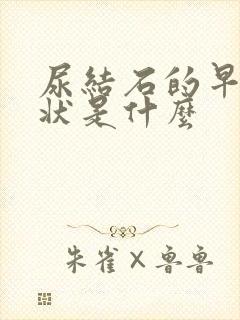 尿結石的早
狀是什麼
朱雀×魯魯